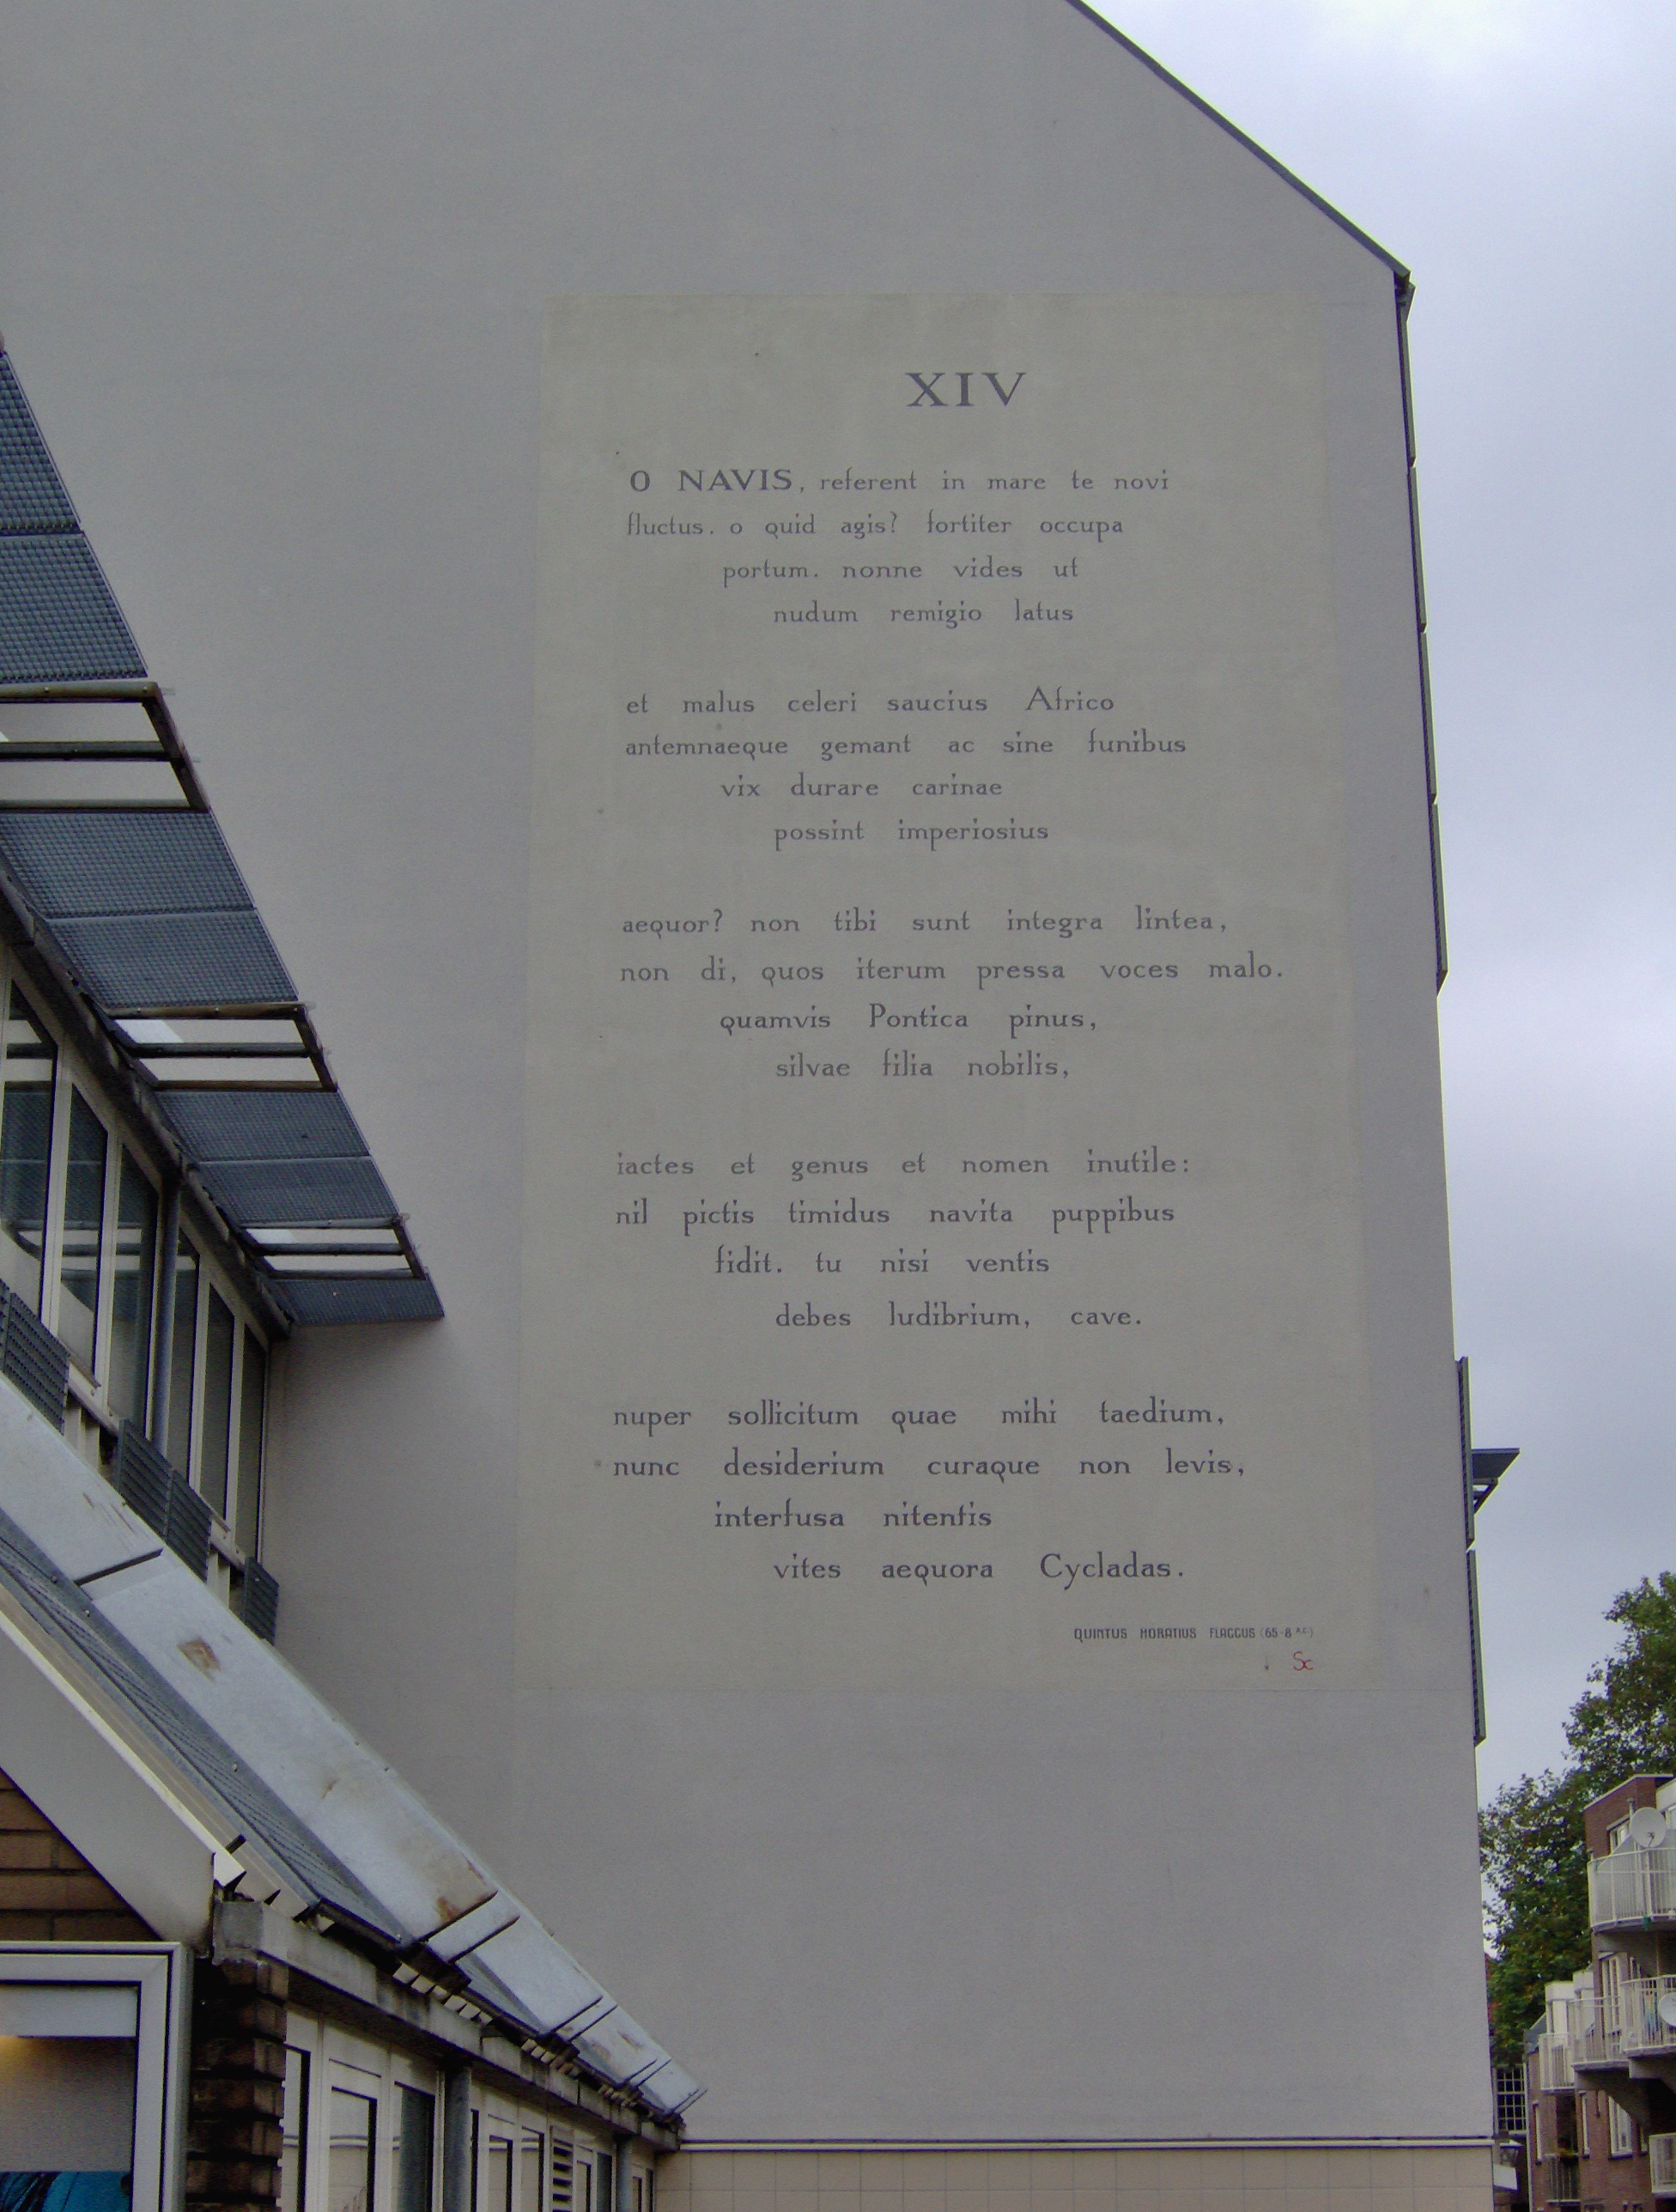 XIV
O NAVIS, referent in mare te novi
fluctus. o quid agis? fortiter occupa
portum. nonne vides ut
nudum remigio latus
et malus celeri saucius Africo
antemnaeque gemant ac sine funibus
vix durare carinae
possint imperiosius
aequor? non tibi sunt integra lintea,
non di, quos iterum pressa voces malo.
quamvis Pontica pinus,
silvae filia nobilis,
iactes et genus et nomen inutile:
nil pictis timidus navita puppibus
fidit. tu nisi ventis
debes ludibrium, cave.
nuper sollicitum quae mihi taedium,
nunc desiderium curaque non levis,
interfusa nitentis
vites aequora Cycladas.
QUINTUS HORATIUS FLACCUS (65-8 a.C.)
Sc